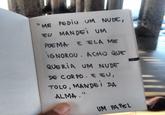 "ME PEDIU UM NUDE,
EU MANDEI UM
POEMA. E ELA ME
IGNOROU. ACHO QUE
QUERIA UM NUDE
DE CORPO. E EU,
TOLO, MANDEI DA
ALMA."
UM PAPEL